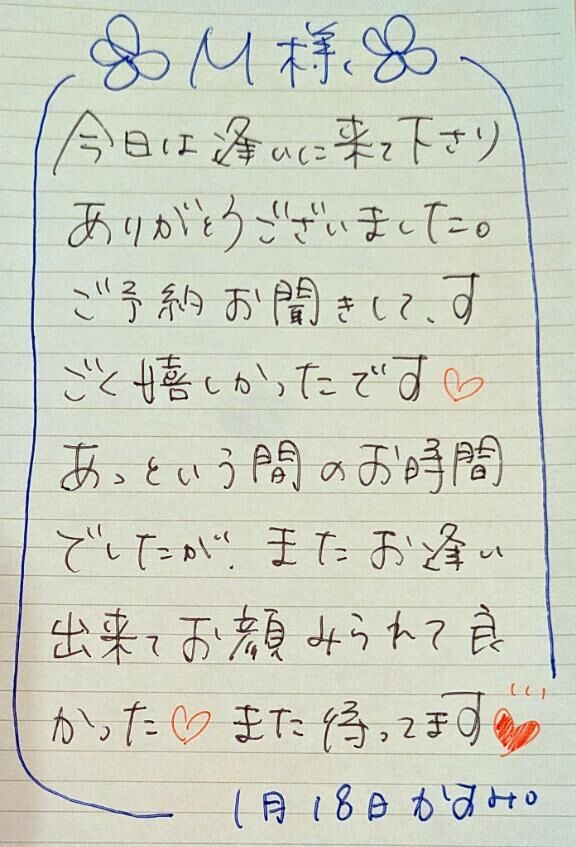 M様
今日は逢いに来て下さり
ありがとうございました。
ご予約お聞きして、す
ごく嬉しかったです♡
あっという間のお時間
でしたが、またお逢い
出来てお顔みられて良
かった♡また待ってます♥
1月18日かすみ。